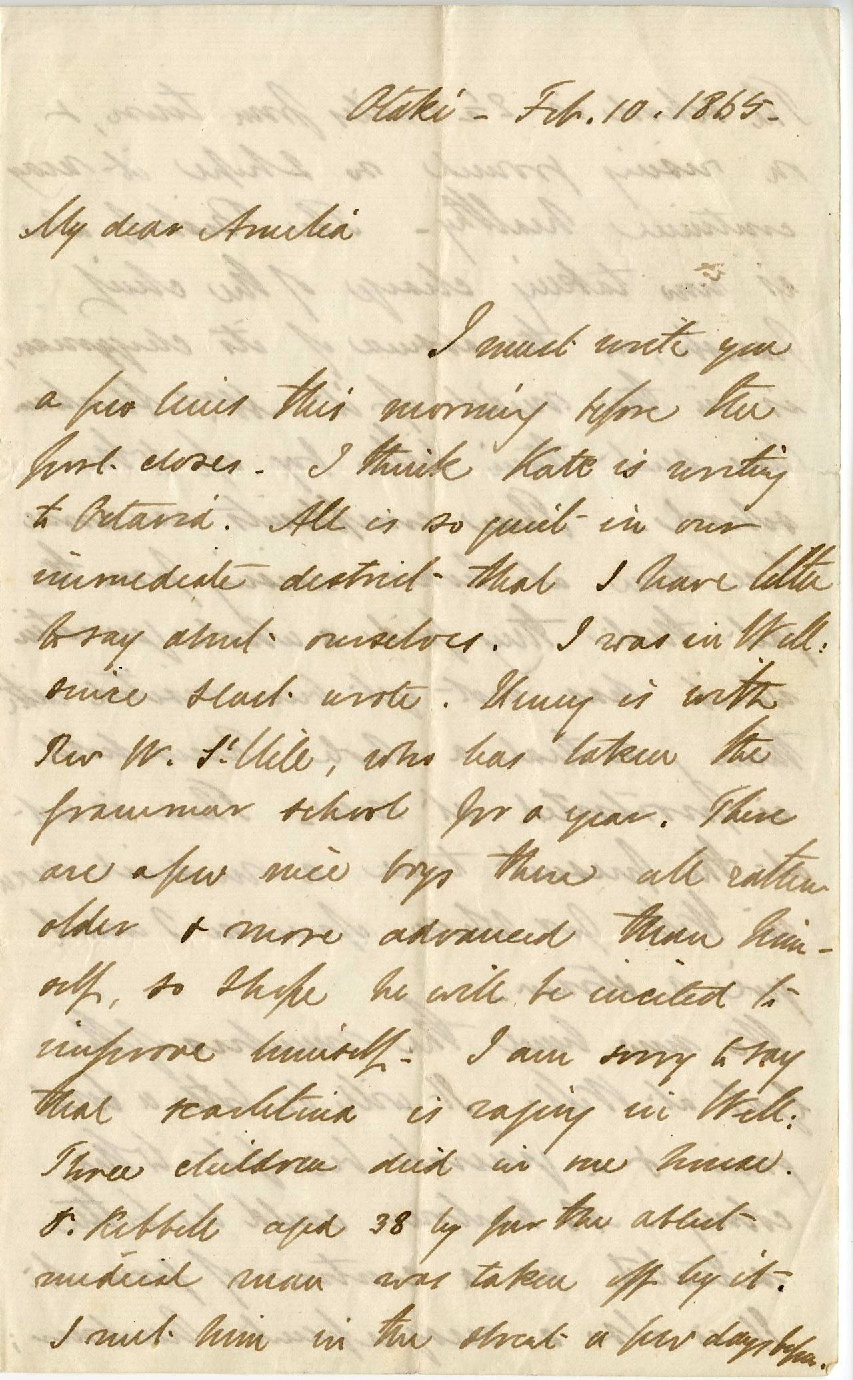 Otaki - Feb. 10. 1865-
My dear Amelia
I must write you
a few lines this morning before the
post closes - I think Kate is writing
to Octavia. All is so quiet in our
immediate district that I have little
to say about ourselves. I was in Well:
since I last wrote. Henry is with
Rev W. St. Hill, who has taken the
grammar school for a year. There
are a few nice boys there all rather
older & more advanced than him-
self, so I hope he will be incited to
improve himself - I am sorry to say
that scarlatina is raging in Well:
Three children died in one house.
aged 38 by far the ablest
medical man was taken off by it.
I met him in the street a few days before.